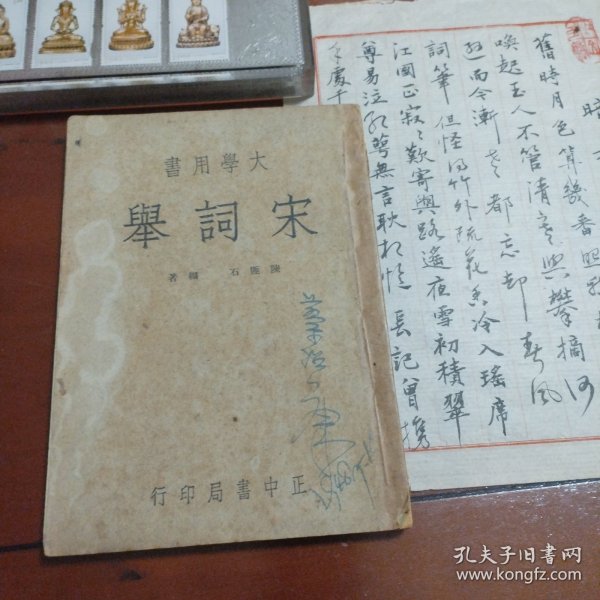 大學用書
宋詞舉
陳匪石 編著
正中書局印行
暗
舊時月色算幾番照
喚起玉人不管清寒與攀摘何
遜而今漸老都忘却春風
詞筆但怪得竹外疏花香冷入瑤席
江國正寂寂歎寄與路遙夜雪初積翠
尊易泣紅萼無言耿相憶長記曾攜
手處千
孔夫子旧书网
www.kongfz.com